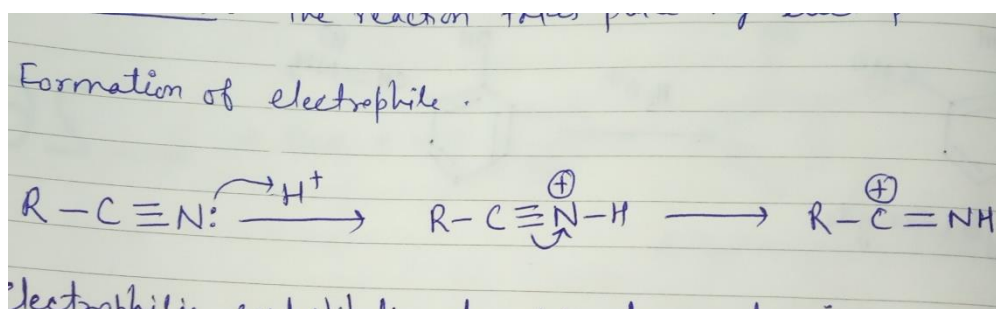 The reaction takes
Formation of electrophile.
R – C ≡ N: → H⁺ ⟶ R – C ≡ N⊕ – H ⟶ R – C⊕ = NH